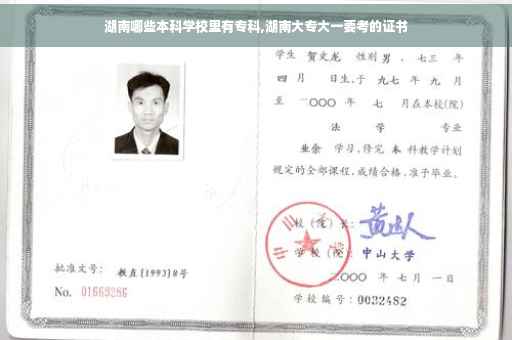 湖南哪些本科学校里有专科,湖南大专大一要考的证书
学生 贺文龙 性别 男 、七三 年
四 月 日生,于 九七 年 九 月
至 二〇〇〇 年 七 月在本校(院)
法 学 专业
业余 学习,修完 本 科教学计划
规定的全部课程,成绩合格,准予毕业。
校(院)长:
学校(院): 中山大学
二〇〇〇 年 七 月 一 日
学校编号: 0032482
批准文号: 教直[1993]8号
No. 01669286